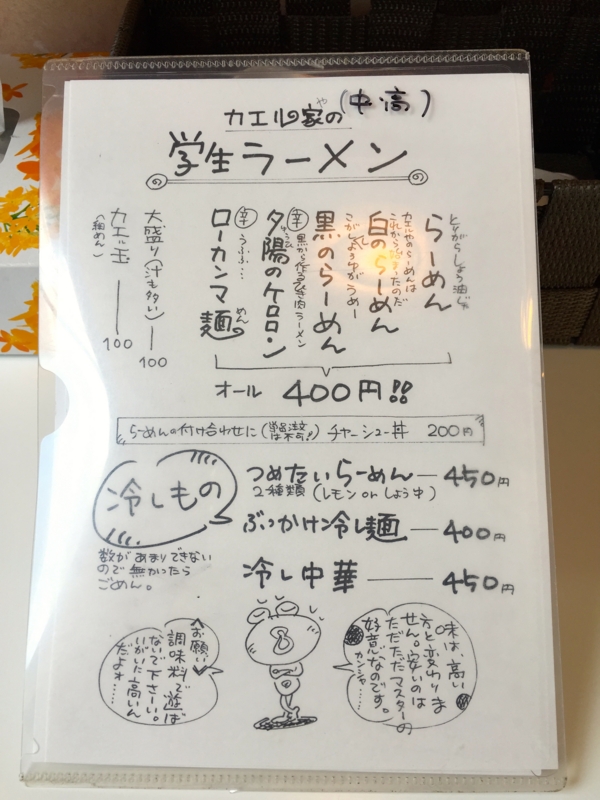 カエル家の(中・高)
や
学生ラーメン
とりがらしょう油じゃ
らーめん
カエルやのらーめんは
これから始まったのだ
白のらーめん
こがししょうゆがうめー
黒のらーめん
辛 黒から作るひき肉ラーメン
夕陽のケロロン
辛 うふふ…
ローカンマ麺
めん
大盛り(汁も多い) 100
カエル玉 100
(細めん)
オール 400円!!
らーめんの付け合わせに(単品注文は不可!!) チャーシュー丼 200円
冷しもの
つめたいらーめん 450円
2種類(レモン or しょうゆ)
ぶっかけ冷し麺 400円
冷し中華 450円
数があまりできない
ので無かったら
ごめん。
味は、高い
方と変わりま
せん。安いのは
ただただマスターの
好意なのです。
カンシャ……
お願い
調味料で遊ば
ないで下さーい。
いがいに高いん
だよォ……